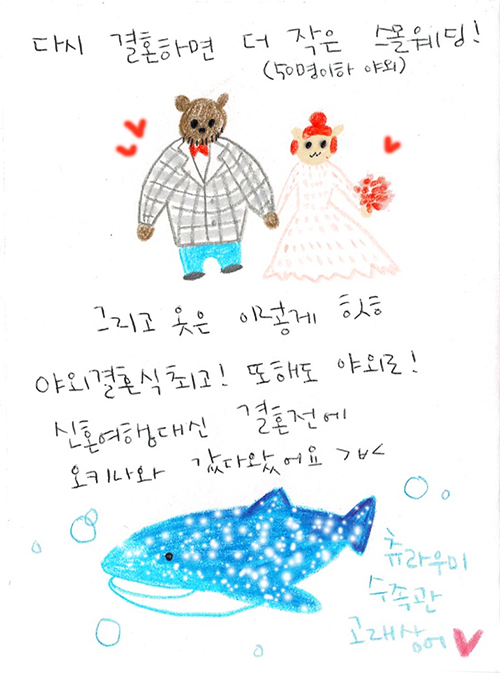 다시 결혼하면 더 작은 스몰웨딩!
(50명이하 야외)
그리고 옷은 이렇게 힛힛
야외결혼식최고! 또해도 야외로!
신혼여행대신 결혼전에
오키나와 갔다왔어요 >ㅂ<
츄라우미
수족관
고래상어